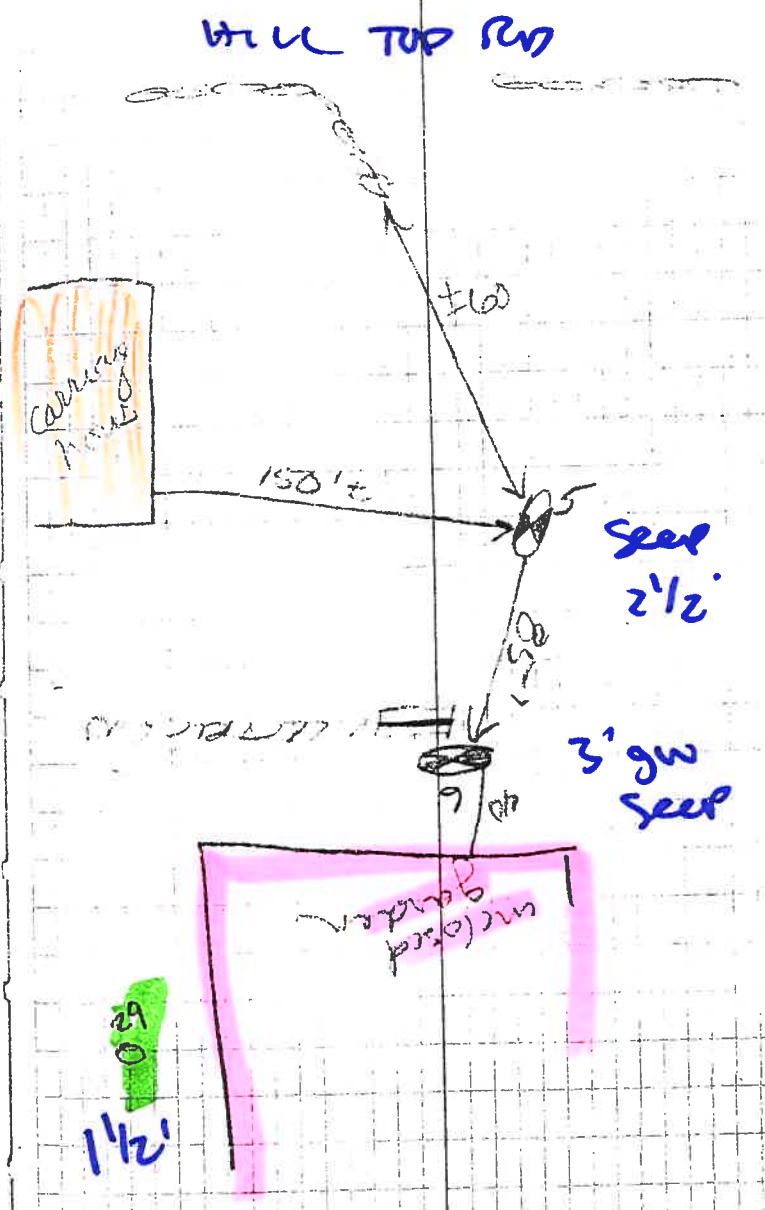 HILL TOP RD
±60
carriage
house
150'±
5
Seep
2 1/2'
50
3' gw
Seep
6
40
enclosed
garden
29
1 1/2'